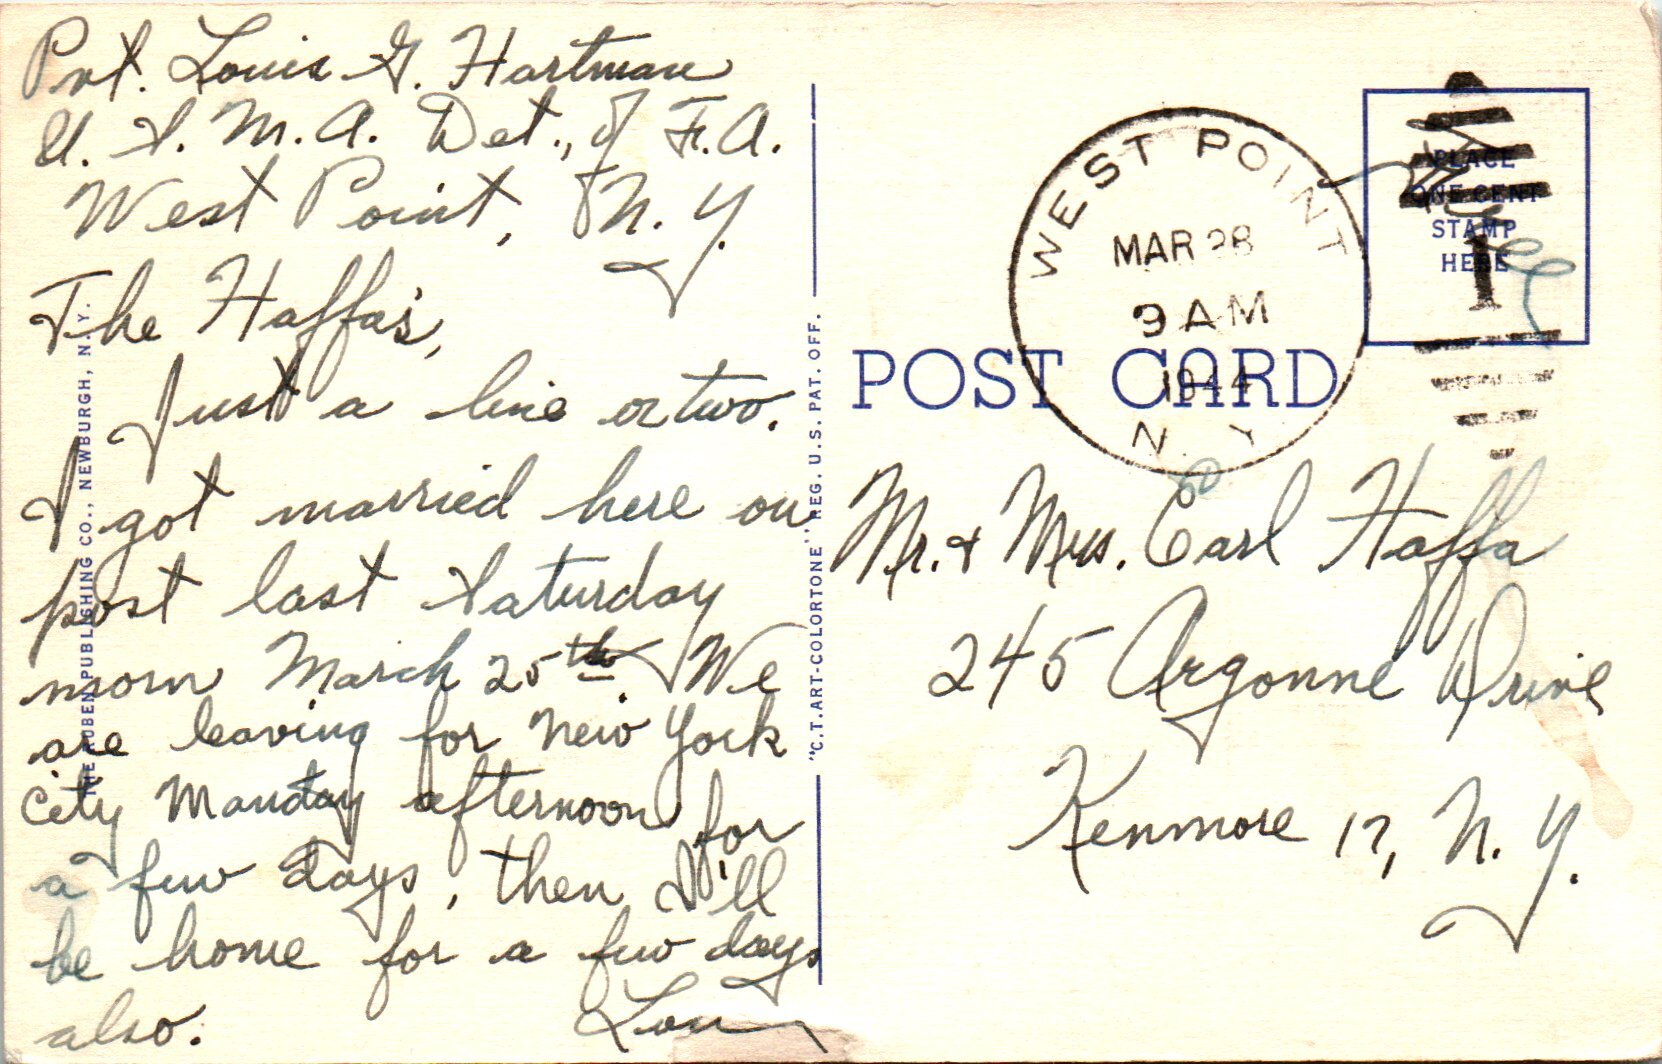 Pvt. Louis G. Hartman
U. S. M. A. Det., of F.A.
West Point, N. Y.
The Haffa's,
Just a line or two.
I got married here on
post last Saturday
morn March 25th. We
are leaving for New York
City Monday afternoon for
a few days, then I'll
be home for a few days
also.
Lou
THE RUBEN PUBLISHING CO., NEWBURGH, N. Y.
"C.T.ART-COLORTONE" REG. U.S. PAT. OFF.
WEST POINT
MAR 28
9 AM
1944
N. Y.
PLACE
ONE CENT
STAMP
HERE
Free
1
POST CARD
Mr. & Mrs. Earl Haffa
245 Argonne Drive
Kenmore 17, N. Y.